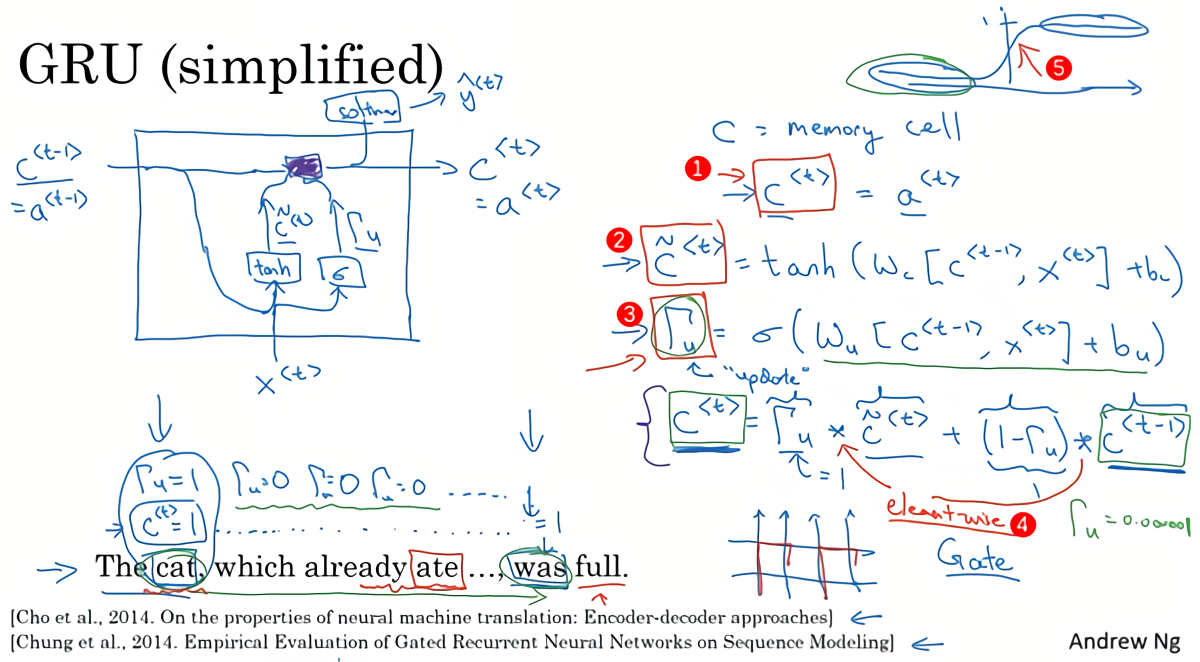 GRU (simplified)
1
5
softmax
ŷ<t>
c = memory cell
c<t-1>
= a<t-1>
c<t>
= a<t>
1
c<t> = a<t>
c̃<t>
Γu
tanh
σ
x<t>
2
c̃<t> = tanh (Wc [c<t-1>, x<t>] + bc)
3
Γu = σ (Wu [c<t-1>, x<t>] + bu)
"update"
c<t> = Γu * c̃<t> + (1-Γu) * c<t-1>
= 1
element-wise 4
Γu = 0.000001
Gate
Γu = 1 Γu=0 Γu=0 Γu=0 .....
c<t> = 1 ........... = 1
The cat, which already ate ..., was full.
[Cho et al., 2014. On the properties of neural machine translation: Encoder-decoder approaches]
[Chung et al., 2014. Empirical Evaluation of Gated Recurrent Neural Networks on Sequence Modeling]
Andrew Ng